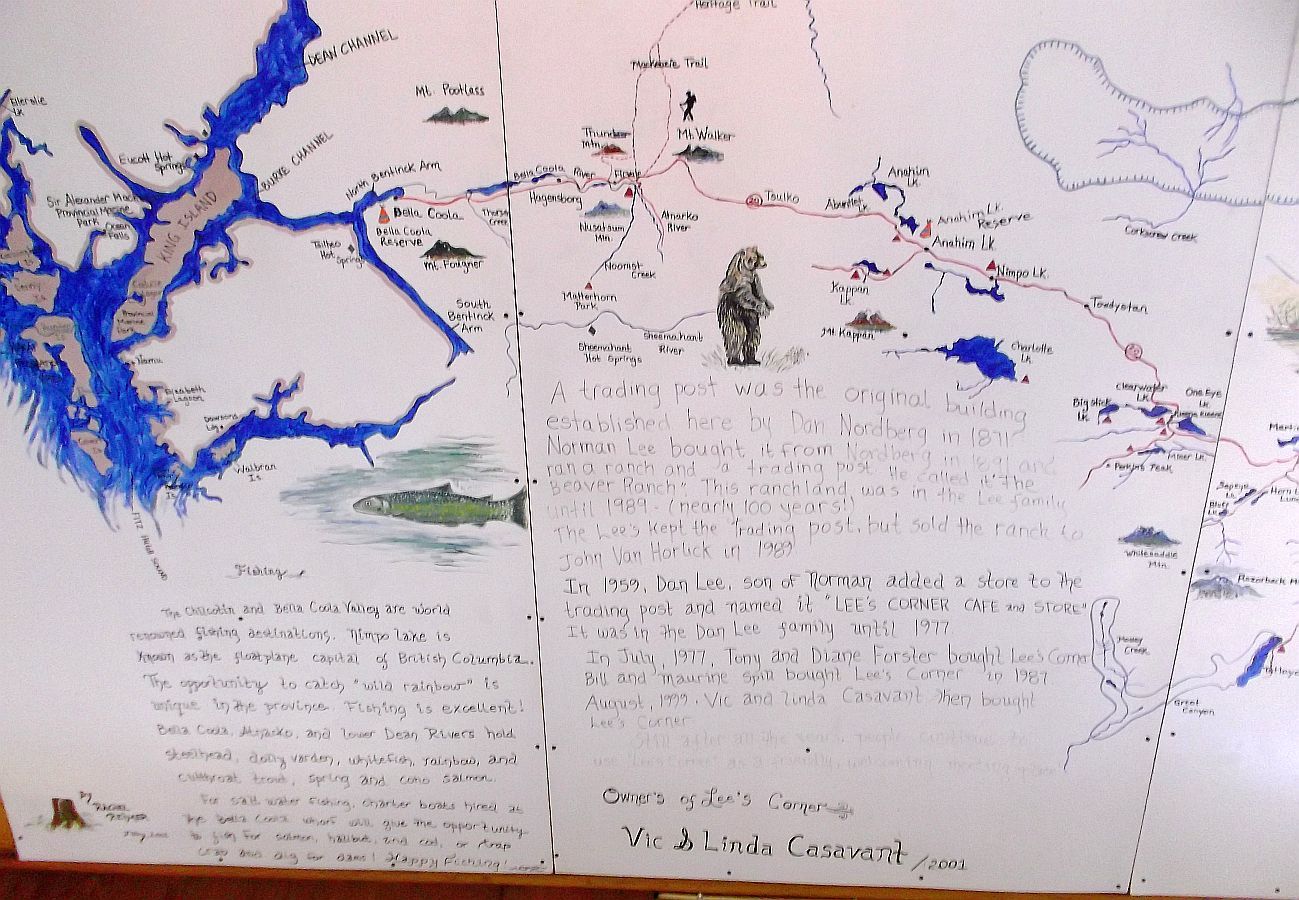 Heritage Trail
DEAN CHANNEL
Mackenzie Trail
Mt. Pootlass
Ellerslie
Lk
Thunder
Mtn.
Mt. Walker
Eucott Hot
Springs
BURKE CHANNEL
North Bentinck Arm
Bella Coola River
Hagensborg
Anahim
Lk.
Sir Alexander Mack
Provincial Marine
Park
Ocean
Falls
KING ISLAND
Bella Coola
Bella Coola
Reserve
Nusatsum
Mtn.
Atnarko
River
20
Tsulko
Anahim Lk.
Reserve
Anahim Lk.
Corkscrew Creek
Mt. Fougner
Noomst
Creek
Kappan
Lk
Nimpo Lk.
Matterhorn
Park
South
Bentinck
Arm
Mt Kappan
Towdystan
Sheemahant
Hot Springs
Sheemahant
River
Charlotte
Lk.
Namu
Elizabeth
Lagoon
Clearwater
Lk.
One Eye
Lk.
Big Stick
Lk.
Miner Lk.
Perkins Peak
Walbran
Is.
Bluff
Lk.
Whitesaddle
Mtn.
Mosley
Creek
Great
Canyon
FITZ HUGH SOUND
A trading post was the original building
established here by Dan Nordberg in 1871
Norman Lee bought it from Nordberg in 1891 and
ran a ranch and a trading post. He called it "the
Beaver Ranch". This ranchland, was in the Lee family
until 1989 - (nearly 100 years!
The Lee's kept the trading post, but sold the ranch to
John Van Horlick in 1989
In 1959, Dan Lee, son of Norman added a store to the
trading post and named it "LEE'S CORNER CAFE and STORE"
It was in the Dan Lee family until 1977
In July, 1977, Tony and Diane Forster bought Lee's Corner
Bill and maurine Spill bought Lee's Corner in 1987
August, 1999. Vic and Linda Casavant then bought
Lee's Corner
Still after all the years, people continue to
use Lee's Corner as a friendly, welcoming meeting place
Owner's of Lee's Corner
Vic & Linda Casavant / 2001
Fishing
The Chilcotin and Bella Coola Valley are world
renowned fishing destinations. Nimpo Lake is
Known as the floatplane capital of British Columbia.
The opportunity to catch "wild rainbow" is
unique in the province. Fishing is excellent!
Bella Coola, Atnarko, and lower Dean Rivers hold
steelhead, dolly varden, whitefish, rainbow, and
cutthroat trout, spring and coho salmon.
For salt water fishing, charter boats hired at
the Bella Coola wharf will give the opportunity
to fish for salmon, halibut, and cod, or trap
crab and dig for clams! Happy Fishing!
By